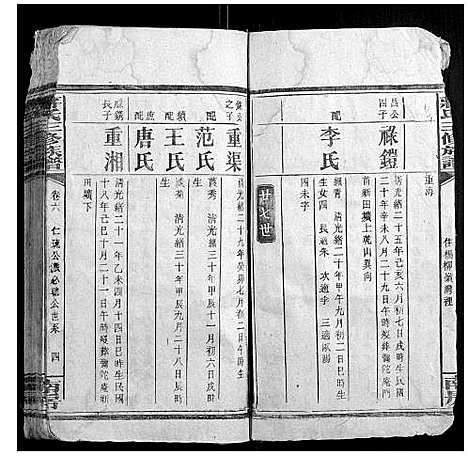 重海
住楊柳嶺灣裡
祿鎧
清光緒二十五年己亥六月初七日戌時生民國
二十年辛未八月二十九日午時歿葬彌陀庵門
首新田壙上艮山異向
配
李氏
清光緒二十年甲午九月初二日巳時
生女四 長適朱 次適李 三適
四未字
廿七世
重渠
清光緒二十九年癸卯七月初二日午時生
配
范氏
清光緒三十年甲辰十一月初六日辰時
生
王氏
清光緒三十年甲辰九月二十八日辰時
生
配
唐氏
長子
重湘
清光緒二十一年乙未四月十四日巳時生民國
十八年己巳十月二十一日午時歿葬彌陀庵新
田壙下
氏三修族譜
卷六
仁 公 公世系
四